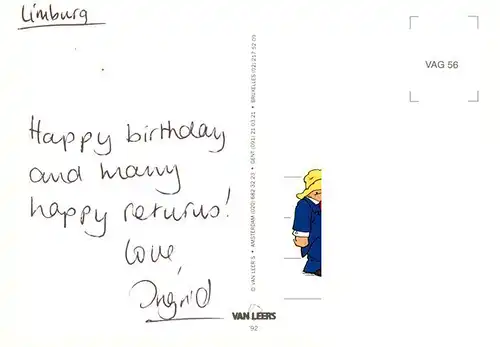 Limburg
Happy birthday
and many
happy returns!
Love,
Ingrid
© VAN LEER'S • AMSTERDAM (020) 682 32 23 • GENT (091) 21 03 21 • BRUXELLES (02) 217 52 09
VAG 56
VAN LEERS
'92